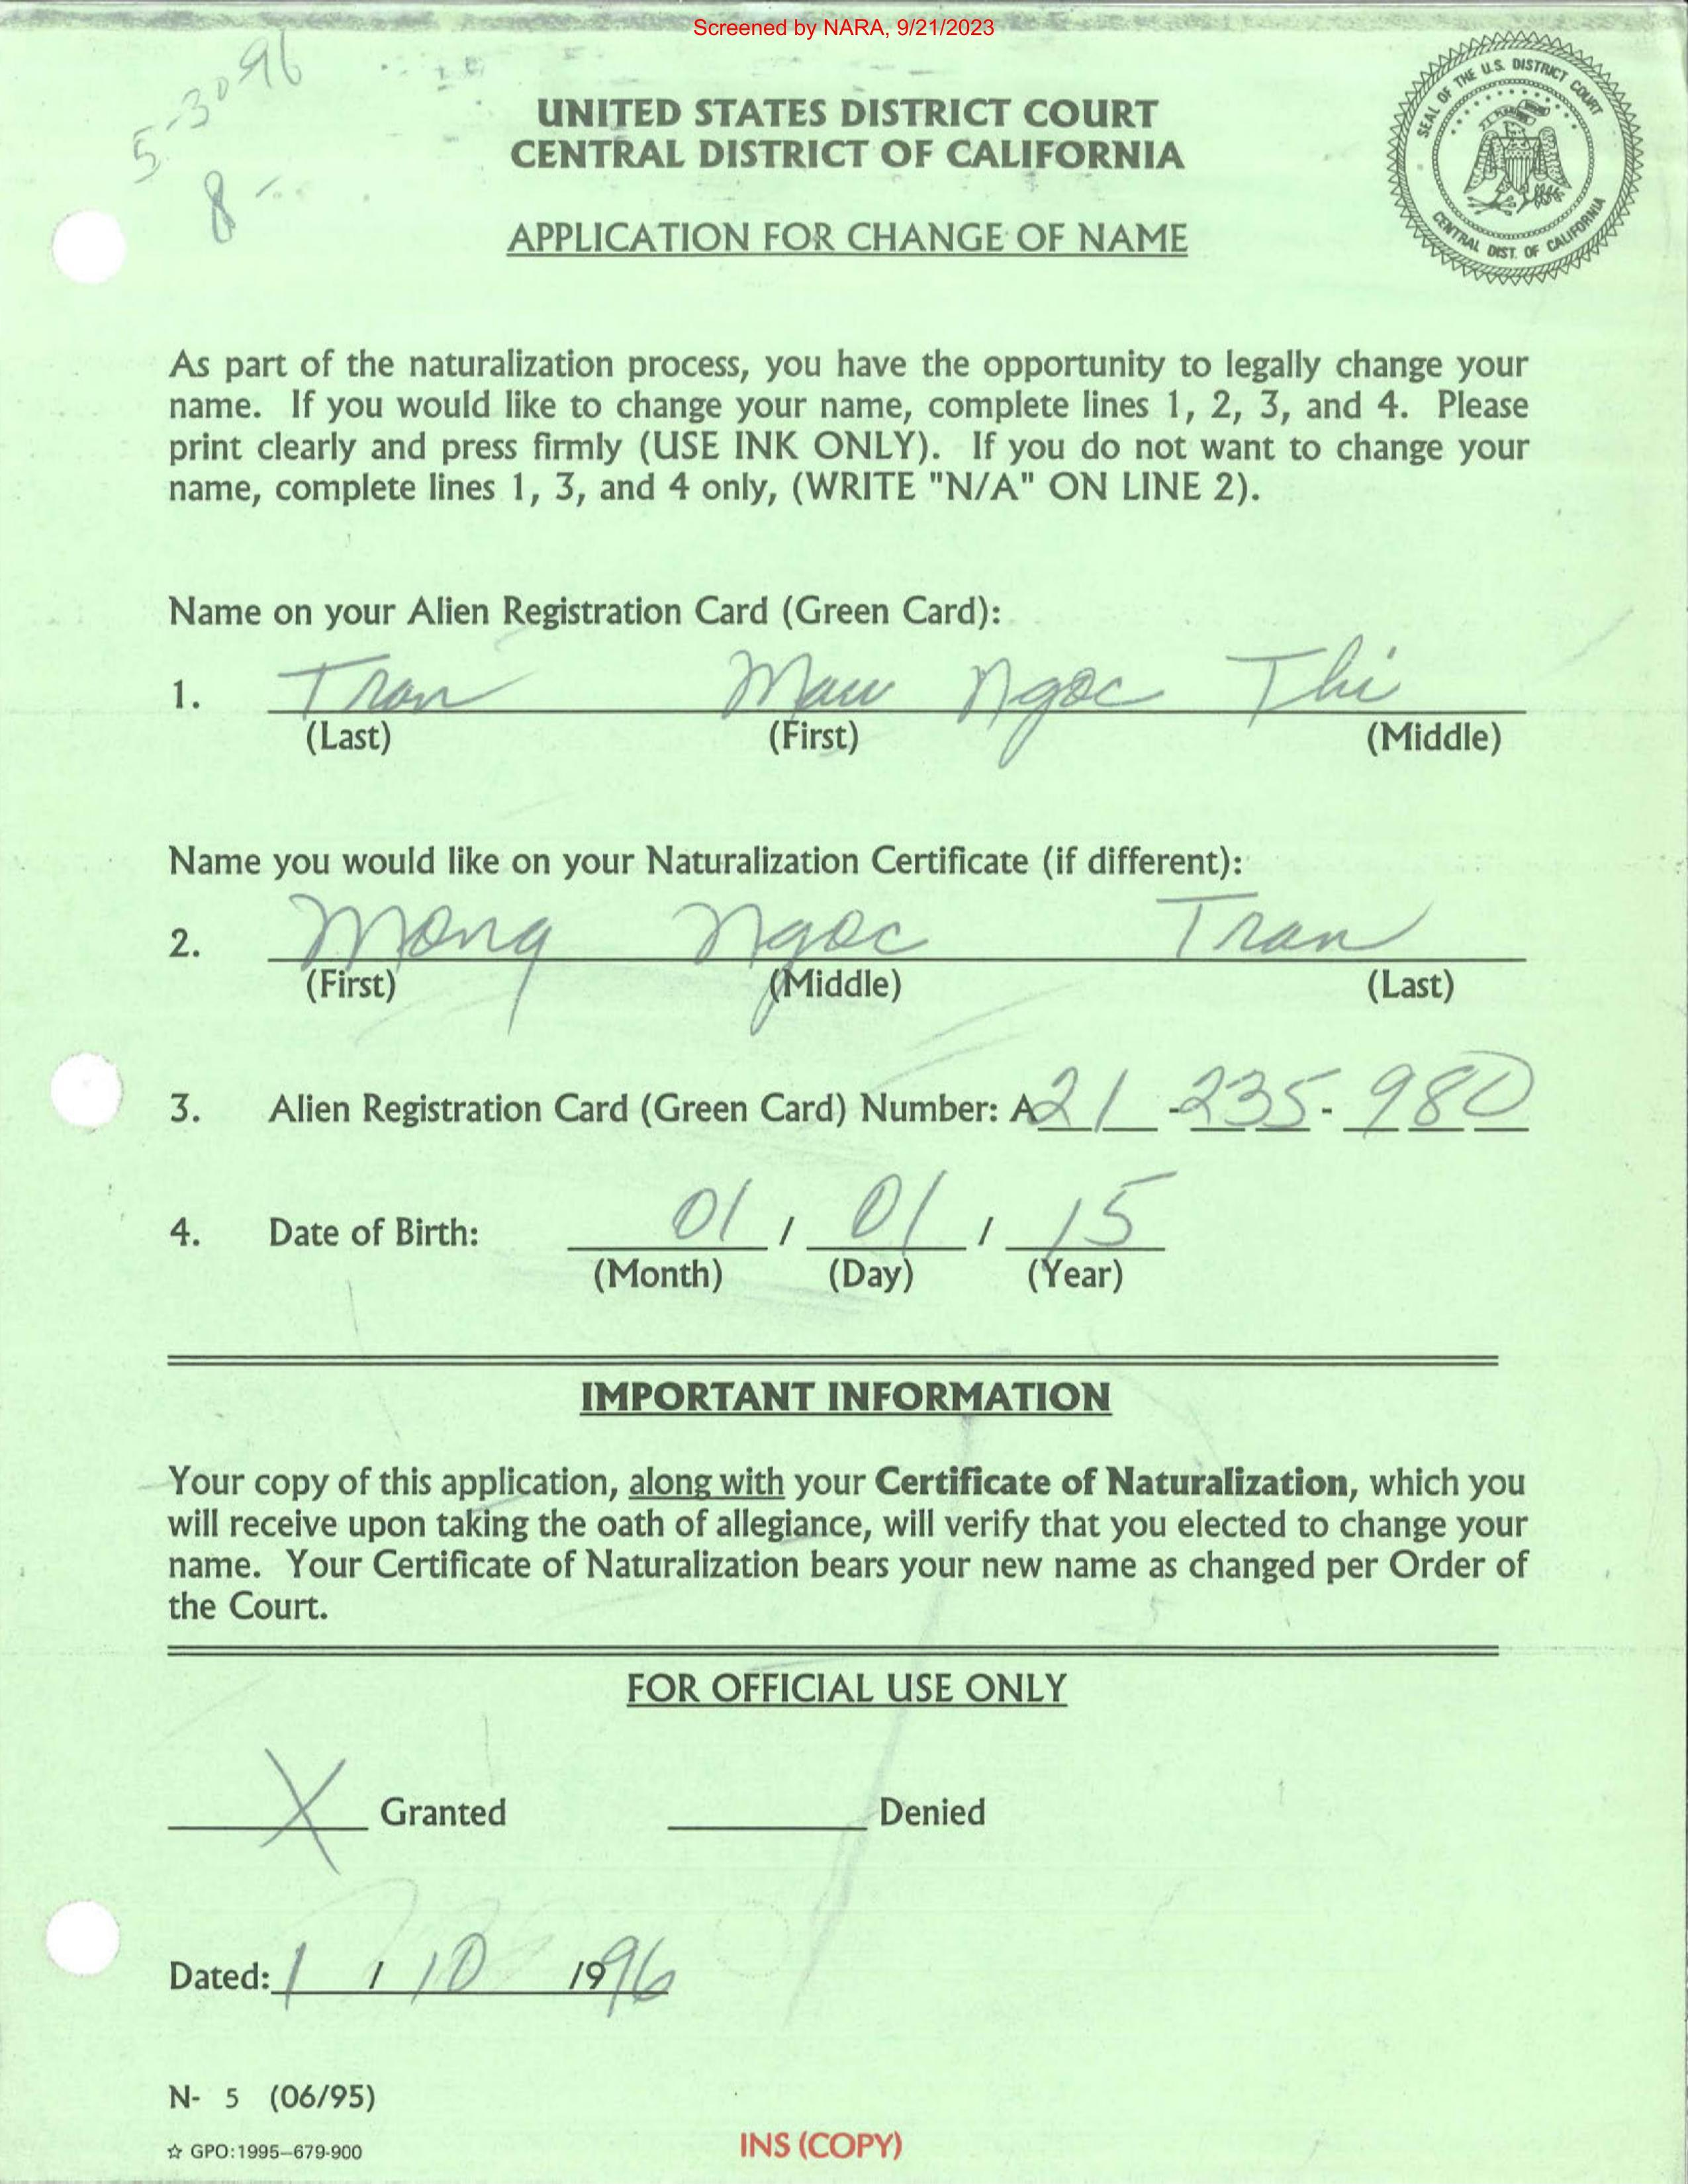 Screened by NARA, 9/21/2023
5-30 96
8
UNITED STATES DISTRICT COURT
CENTRAL DISTRICT OF CALIFORNIA
SEAL OF THE U.S. DISTRICT COURT
CENTRAL DIST. OF CALIFORNIA
APPLICATION FOR CHANGE OF NAME
As part of the naturalization process, you have the opportunity to legally change your
name. If you would like to change your name, complete lines 1, 2, 3, and 4. Please
print clearly and press firmly (USE INK ONLY). If you do not want to change your
name, complete lines 1, 3, and 4 only, (WRITE "N/A" ON LINE 2).
Name on your Alien Registration Card (Green Card):
1. Tran Ngoc Thi
(Last) (First) (Middle)
Name you would like on your Naturalization Certificate (if different):
2. Mong Ngoc Tran
(First) (Middle) (Last)
3. Alien Registration Card (Green Card) Number: A21-235-980
4. Date of Birth: 01 / 01 / 15
(Month) (Day) (Year)
IMPORTANT INFORMATION
Your copy of this application, along with your Certificate of Naturalization, which you
will receive upon taking the oath of allegiance, will verify that you elected to change your
name. Your Certificate of Naturalization bears your new name as changed per Order of
the Court.
FOR OFFICIAL USE ONLY
X Granted Denied
Dated: 1 / 10 /1996
N- 5 (06/95)
☆ GPO:1995–679-900
INS (COPY)